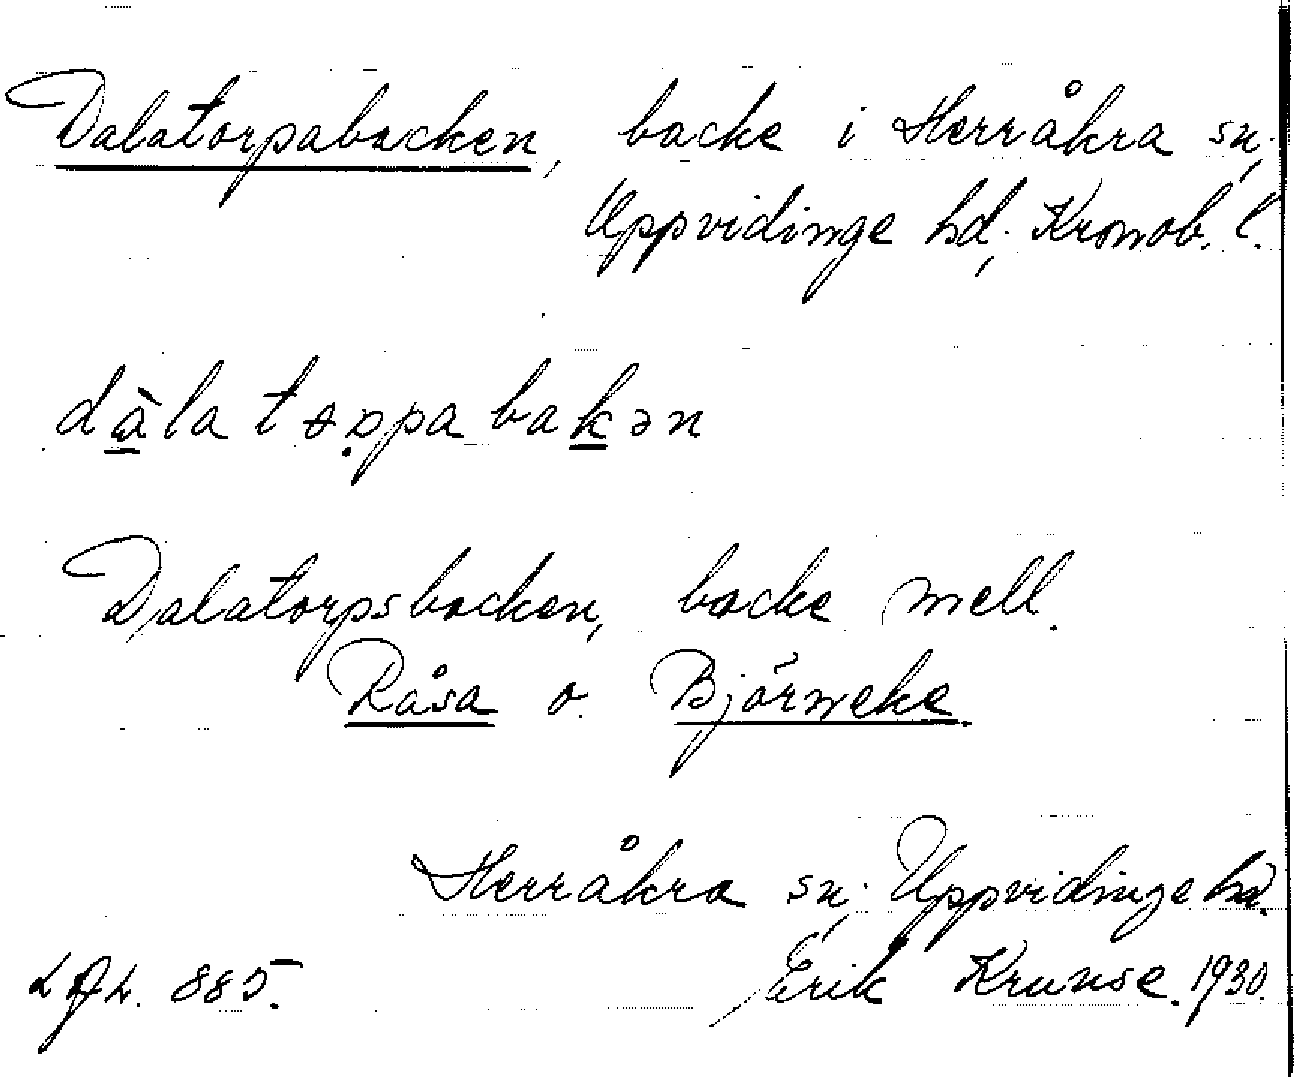 Dalatorpabacken, backe i Herråkra sn,
Uppvidinge hd, Kronob. l.
dàla tɵppa bakən
Dalatorpsbacken, backe mell.
Råsa o. Björneke.
Herråkra sn, Uppvidinge hd.
Erik Krunse. 1930.
885.